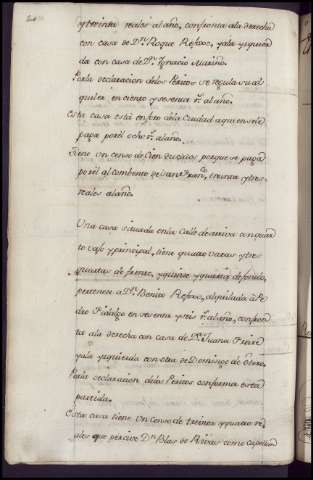 y treinta reales al año, confronta ala derecha
con casa de Dn. Roque Refoxo, y ala yzquier
da con casa de Dn. Ygnacio Mariño.
Por la declaracion delos Peritos se regula su al
quiler en ciento y setenta rs. al año.
Esta casa está en foro dela Ciudad aquien se le
paga por el ocho rs. al año.
Tiene un censo de Cien ducados porque se paga
por el al combento de San Franco. treinta y tres
reales al año.
Una casa situada en la Calle de arriva con quar
to vajo y principal, tiene quatro varas y tres
quartas de frente, y quince y quarta de fondo,
pertenece a Dn. Benito Refoxo, alquilada á Pe
dro Fidalgo en setenta y seis rs. al año, confron
ta ala derecha con casa de Da. Juana Freire
y ala yzquierda con otra de Domingo de Otero.
Por la declaracion delos Peritos conforma esta
partida.
Esta casa tiene un censo de treinta y quatro re
ales que percive Dn. Blas de Rivas como capellan